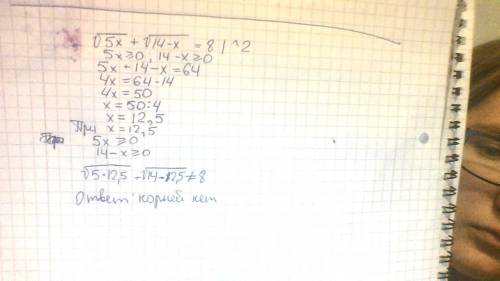 √5x + √14-x = 8 | ^2
5x ≥ 0, 14 - x ≥ 0
5x + 14 - x = 64
4x = 64 - 14
4x = 50
x = 50 : 4
x = 12,5
При x = 12,5
5x ≥ 0
14 - x ≥ 0
√5·12,5 - √14-12,5 ≠ 8
Ответ: корней нет